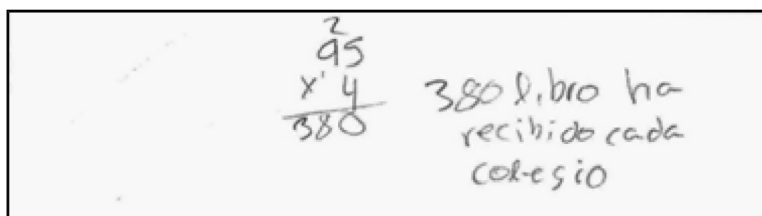 2
95
x' 4
380
380 libro ha
recibido cada
colegio